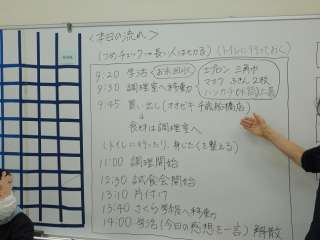 <本日の流れ>
(つめチェック→長い人は切る) (トイレに行っておく)
9:20 学活
エプロン 三角巾
マスク ふきん2枚
9:30 調理室へ移動
9:45 買い出し(オオゼキ 千歳船橋店)
↓
食材は調理室へ
(トイレに行ったり、身じたくを整える)
11:00 調理開始
12:30 試食会開始
13:10 片付け
13:40 さくら学級へ移動
14:00 学活(今日の感想を一言) 解散